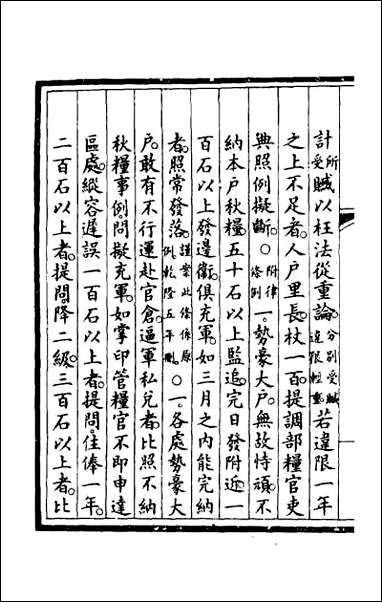 計所受贓以枉法從重論分别受贓違限輕重若違限一年
之上不足者人户里長杖一百提調部糧官吏
典照例擬斷○附律條例一勢豪大户無故恃頑不
納本户秋糧五十石以上監追完日發附近一
百石以上發邊衞俱充軍如三月之内能完納
者照常發落謹案此條係原例乾隆五年刪○一各處勢豪大
户敢有不行運赴官倉逼軍私兑者比照不納
秋糧事例問擬充軍如掌印管糧官不即申達
區處縱容遲誤一百石以上者提問住俸一年
二百石以上者提問降二級三百石以上者比